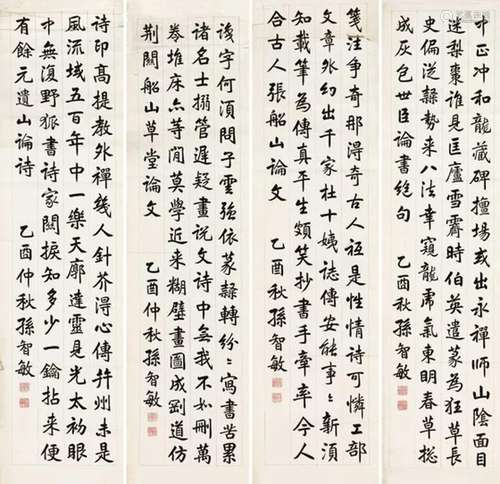 中正冲和龍藏碑擅場或出永禪師山陰面目
迷梨棗誰見匡廬雪霽時伯英遺篆為狂草長
史偏從隸勢來八法幸窺龍虎氣東明春草總
成灰包世臣論書絕句　乙酉仲秋孫智敏
箋注爭奇那得奇古人祗是性情詩可憐工部
文章外幻出千家杜十姨誌傳安能事々新須
知載筆為傳真平生頗笑抄書手牽率今人
合古人張船山論文　乙酉仲秋孫智敏
字何須問子雲強依篆隸轉紛々寫書苦累
諸名士搦管遲疑畫說文詩中無我不如刪萬
卷堆床亦等閒莫學近來糊壁畫圖成剛道仿
荆關船山草堂論文　乙酉仲秋孫智敏
詩印高提教外禪幾人針芥得心傳并州未是
風流域五百年中一樂天廓達靈見光太初眼
中無復野狐書詩家關捩知多少一鑰拈來便
有餘元遺山論詩　乙酉仲秋孫智敏